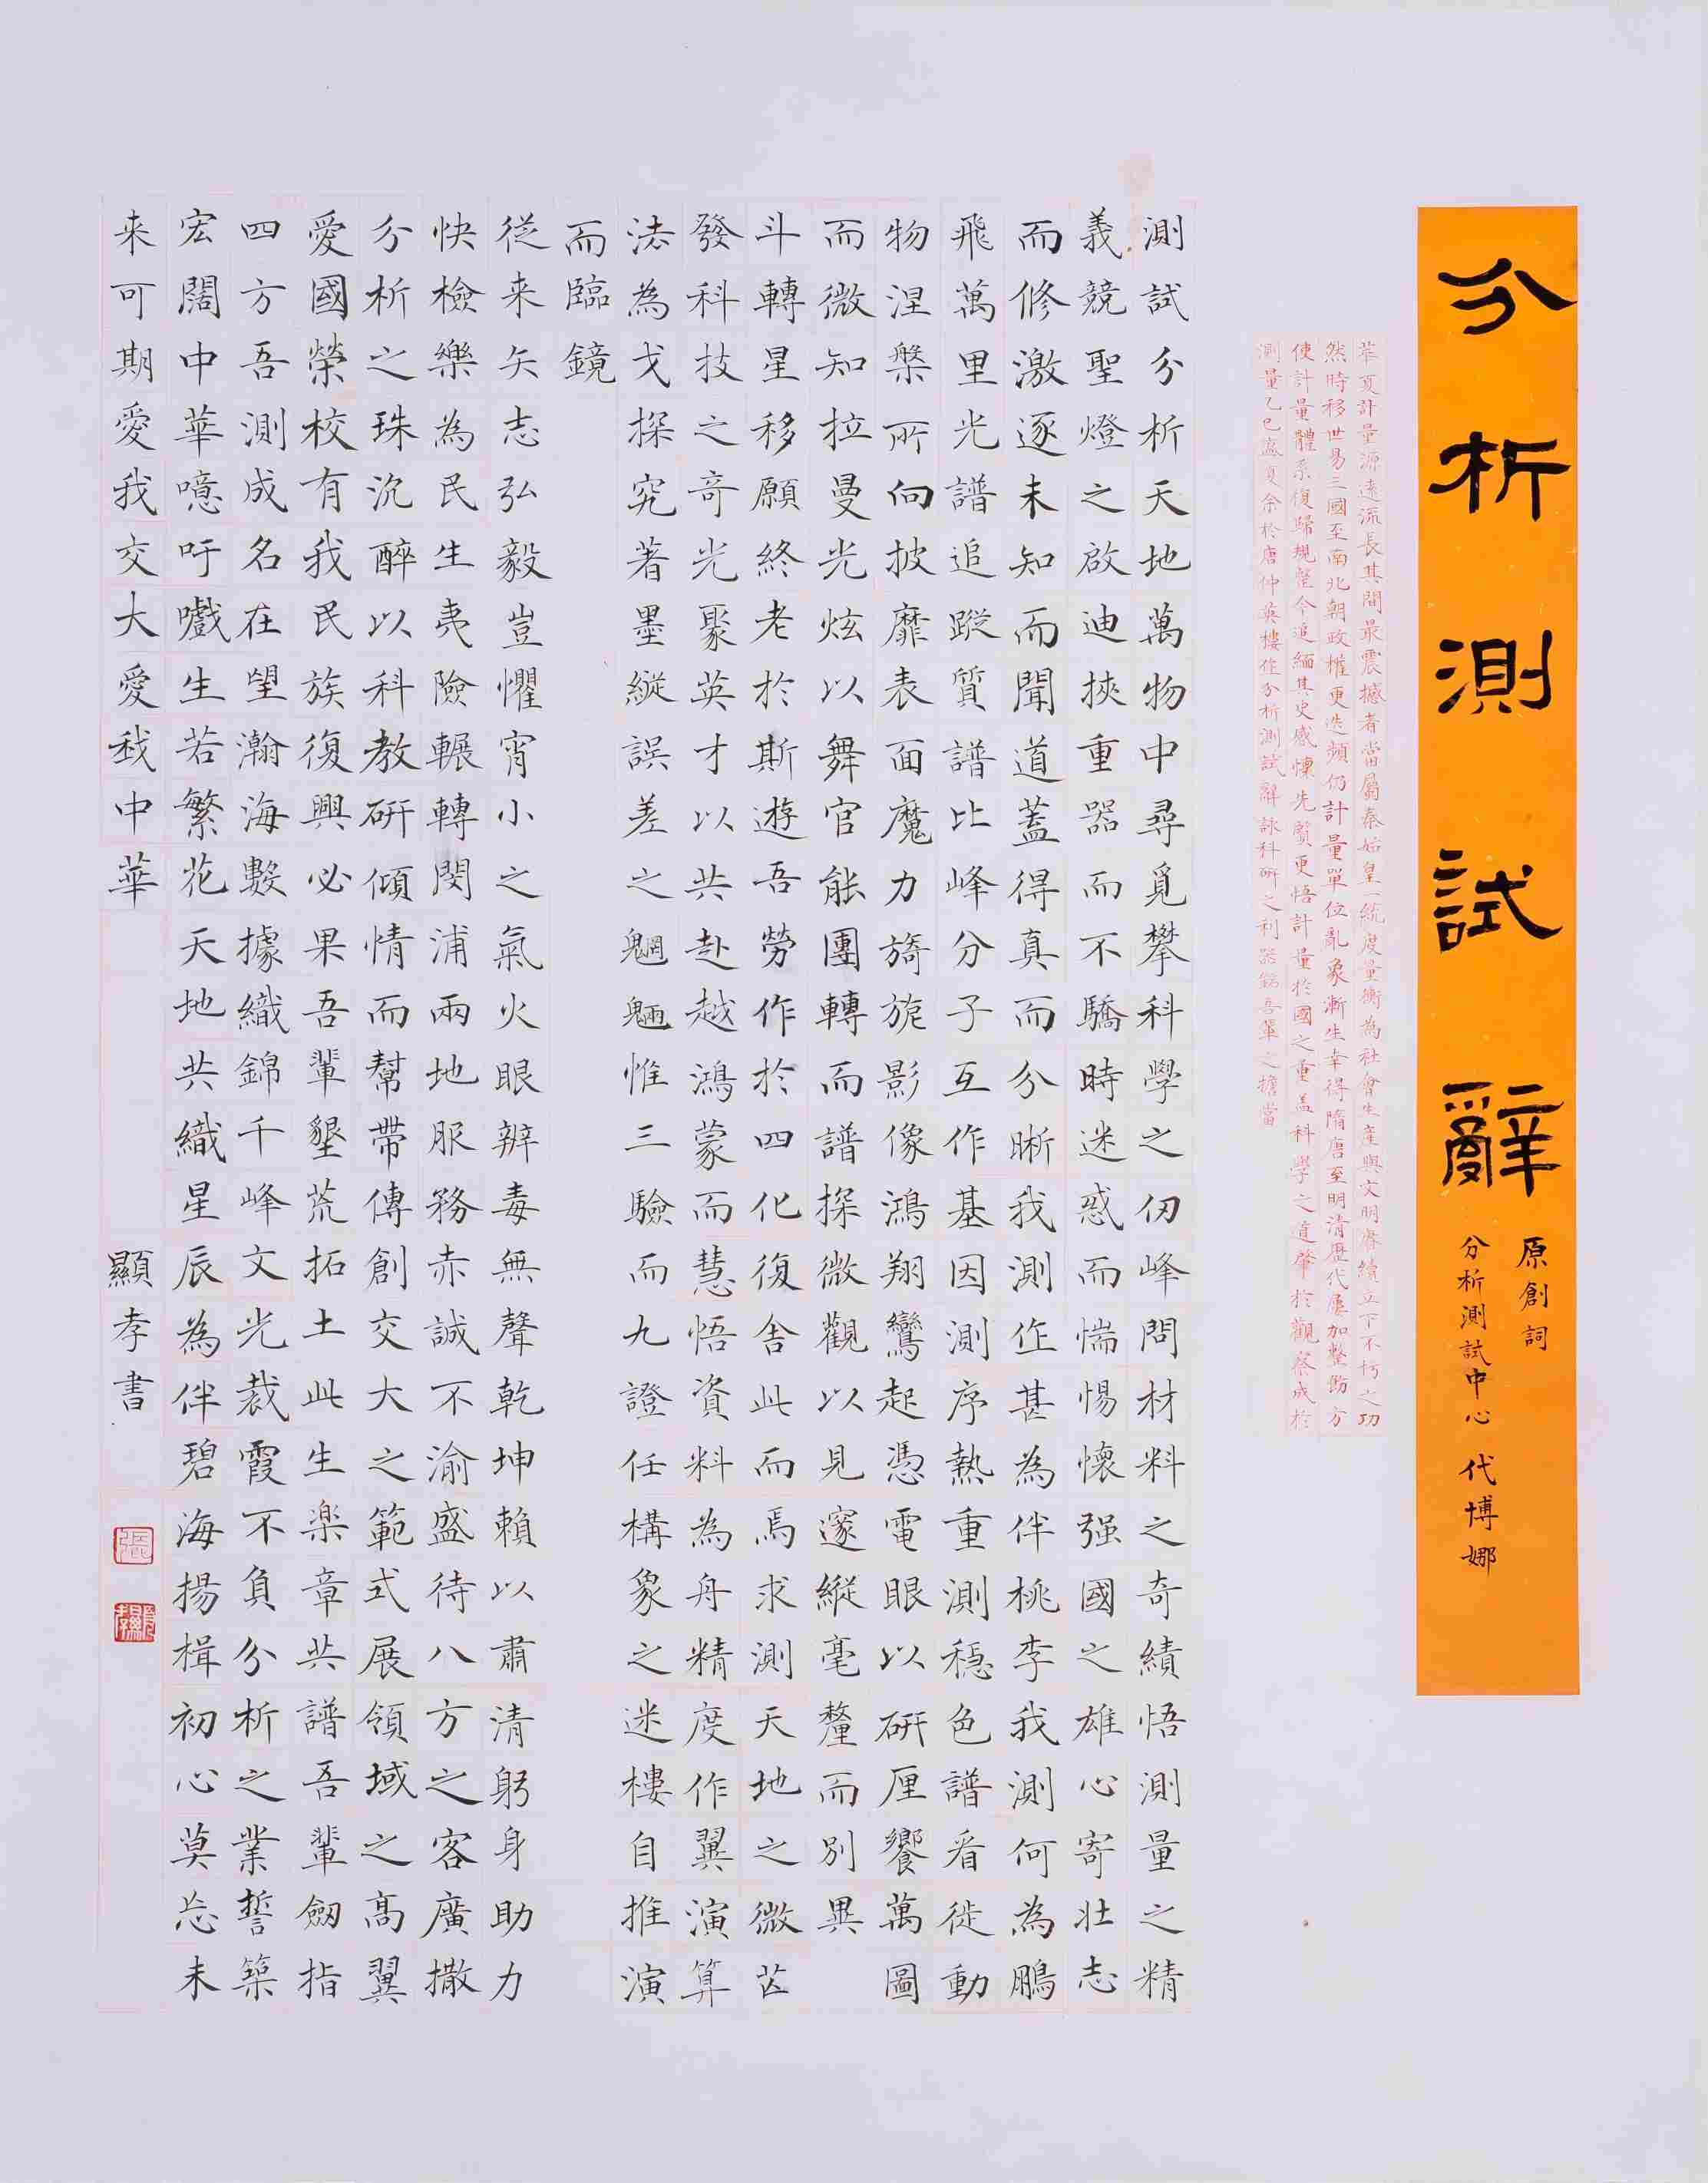 分析測試辭
原創詞
分析測試中心 代博娜
華夏計量源遠流長其間最震撼者當屬秦始皇一統度量衡為社會生產與文明賡續立下不朽之功
然時移世易三國至南北朝政權更迭頻仍計量單位亂象漸生幸得隋唐至明清歷代屢加整飭方
使計量體系復歸規整今追緬其史感懷先賢更悟計量於國之重蓋科學之道肇於觀察成於
測量乙巳盛夏余於唐仲英樓作分析測試辭詠科研之利器銘吾輩之擔當
測試分析天地萬物中尋覓攀科學之仞峰問材料之奇績悟測量之精
義競聖燈之啟迪挾重器而不驕時迷惑而惴惕懷强國之雄心寄壯志
而修激逐未知而聞道蓋得真而分晰我測作甚為伴桃李我測何為鵬
飛萬里光譜追蹤質譜比峰分子互作基因測序熱重測穩色譜看徙動
物涅槃所向披靡表面魔力旖旎影像鴻翔鸞起憑電眼以研厘饗萬圖
而微知拉曼光炫以舞官能團轉而譜探微觀以見邃縱毫釐而別異
斗轉星移願終老於斯遊吾勞作於四化復舍此而焉求測天地之微芒
發科技之奇光聚英才以共赴越鴻蒙而慧悟資料為舟精度作翼演算
法為戈探究著墨縱誤差之魍魎惟三驗而九證任構象之迷樓自推演
而臨鏡
從来矢志弘毅豈懼宵小之氣火眼辨毒無聲乾坤賴以肅清躬身助力
快檢樂為民生夷險輾轉閔浦兩地服務赤誠不渝盛待八方之客廣撒
分析之珠沉醉以科教研傾情而幫帶傳創交大之範式展領域之高翼
愛國榮校有我民族復興必果吾輩墾荒拓土此生楽章共譜吾輩劍指
四方吾測成名在望瀚海數據織錦千峰文光裁霞不負分析之業誓築
宏闊中華噫吁嚱生若繁花天地共織星辰為伴碧海揚楫初心莫忘未
来可期愛我交大愛我中華
顯孝書
張